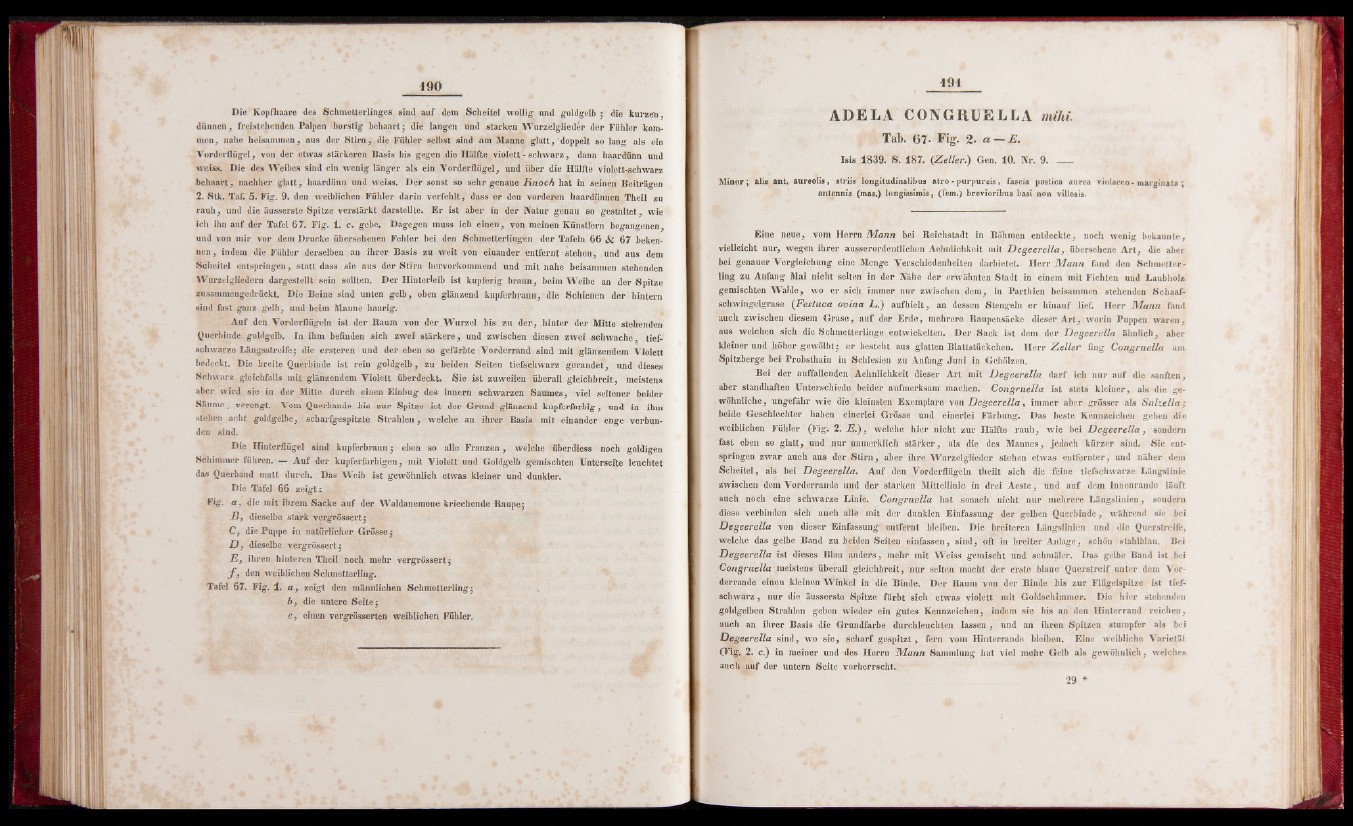 190
Die Kopfhaare des Schmetterlinges sind auf dem Scheitel wollig und goldgelb ; die kurzen,
dünnen, freistehenden Palpen borstig behaart; die langen und starken Wurzelglieder der Fühler kom-
men, nahe beisammen, aus der Stirn, die Fühler selbst sind am Manne glatt, doppelt so lang als ein
Vorderflügel, von der etwas stärkeren Basis bis gegen die Hälfte violett-schwarz, dann haardünn und
weiss. Die des Weibes sind ein wenig länger als ein Vorderflügel, und über die Hälfte violett-schwarz
behaart, nachher glatt, haardünn und weiss. Der sonst so sehr genaue Knoch hat in seinen Beiträgen
2. Stk. Taf. 5. Fig. 9. den weiblichen Fühler darin verfehlt, dass er den vorderen haardünnen Theil zu
rauh, und die äusserste Spitze verstärkt darstellte. Er ist aber in der Natur genau so gestaltet, wie
ich ihn auf der Tafel 67. Fig. 1. c. gebe. Dagegen muss ich einen, von meinen Künstlern begangenen,
und von mir vor dem Drucke übersehenen Fehler bei den Schmetterlingen der Tafeln 66 & 67 beken-
nen, indem die Fühler derselben an ihrer Basis zu weit von einander entfernt stehen, und aus dem
Scheitel entspringen, statt dass sie aus der Stirn hervorkommend und mit nahe beisammen stehenden
Wurzelgliedern dargestellt sein sollten. Der Hinterleib ist kupferig braun, beim Weibe an der Spitze
zusammengedrückt. Die Beine sind unten gelb, oben glänzend kupferbraun, die Schienen der hintern
sind fast ganz gelb, und beim Manne haarig.
Auf den Vorderflügeln ist der Raum von der Wurzel bis zu der, hinter der Mitte stehenden
Querbinde goldgelb. In ihm befinden sich zwei stärkere, und zwischen diesen zwei schwache, tief-
schwarze Längsstreife; die ersteren und der eben so gefärbte Vorderrand sind mit glänzendem Violett
bedeckt. Die breite Querbinde ist rein goldgelb, zu beiden Seiten tiefschwarz gerandet, und dieses
Schwarz gleichfalls mit glänzendem Violett überdeckt. Sie ist zuweilen überall gleichbreit, meistens
aber wird sie in der Mitte durch einen Einbug des innern schwarzen Saumes, viel seltener beider
Säume, verengt. Vom Querbande bis zur Spitze ist der Grund glänzend kupferfarbig, und in ihm
stehen acht goldgelbe, scharfgespitzte Strahlen, welche an ihrer Basis mit einander enge verbun-
den sind.
Die Hinterflügel sind kupferbraun; eben so alle Franzen, welche überdiess noch goldigen
Schimmer führen. — Auf der kupferfarbigen, mit Violett und Goldgelb gemischten Unterseite leuchtet
das Querband matt durch. Das Weib ist gewöhnlich etwas kleiner und dunkler.
Die Tafel 66 zeigt:
Fig. a, die mit ihrem Sacke auf der Waldanemone kriechende Raupe;
B, dieselbe stark vergrössert;
C, die Puppe in natürlicher Grösse;
D, dieselbe vergrössert;
E, ihren hinteren Theil noch mehr vergrössert;
f, den weiblichen Schmetterling.
Tafel 67. Fig. 1. a, zeigt den männlichen Schmetterling;
b, die untere Seite;
c, einen vergrösserten weiblichen Fühler.
191
ADELA CONGRUELLA mihi.
Tab. 67. Fig. 2. a — E.
Isis 1839. S. 187. (Zeller.) Gen. 10. Nr. 9.
Minor; alis ant. aureolis, striis longitudinalibus atro-purpureis, fascia postica aurea violaceo-marginata;
antennis (mas.) longissimis, (fem.) brevioribus basi non villosis.
Eine neue, vom Herrn Mann bei Reichstadt in Böhmen entdeckte, noch wenig bekannte,
vielleicht nur, wegen ihrer ausserordentlichen Aehnlichkeit mit Degeerella, übersehene Art, die aber
bei genauer Vergleichung eine Menge Verschiedenheiten darbietet. Herr Mann fand den Schmetter-
ling zu Anfang Mai nicht selten in der Nähe der erwähnten Stadt in einem mit Fichten und Laubholz
gemischten Walde, wo er sich immer nur zwischen dem, in Parthien beisammen stehenden Schaaf-
schwingelgrase (Festuca ovina L.) aufhielt, an dessen Stengeln er hinauf lief. Herr Mann fand
auch zwischen diesem Grase, auf der Erde, mehrere Raupensäcke dieser Art, worin Puppen waren,
aus welchen sich die Schmetterlinge entwickelten. Der Sack ist dem der Degeerella ähnlich, aber
kleiner und höher gewölbt; er besteht aus glatten Blattstückchen. Herr Zeller fing Congruella am
Spitzberge bei Probsthain in Schlesien zu Anfang Juni in Gehölzen.
Bei der auffallenden Aehnlichkeit dieser Art mit Degeerella darf ich nur auf die sanften,
aber standhaften Unterschiede beider aufmerksam machen. Congruella ist stets kleiner, als die ge-
wöhnliche, ungefähr wie die kleinsten Exemplare von Degeerella, immer aber grösser als Sulzella;
beide Geschlechter haben einerlei Grösse und einerlei Färbung. Das beste Kennzeichen geben die
weiblichen Fühler (Fig. 2. E.), welche hier nicht zur Hälfte rauh, wie bei Degeerella, sondern
fast eben so glatt, und nur unmerklich stärker, als die des Mannes, jedoch kürzer sind. Sie ent-
springen zwar auch aus der Stirn, aber ihre Wurzelglieder stehen etwas entfernter, und näher dem
Scheitel, als bei Degeerella. Auf den Vorderflügeln theilt sich die feine tiefschwarze Längslinie
zwischen dem Vorderrande und der starken Mittellinie in drei Aeste, und auf dem Innenrande läuft
auch noch eine schwarze Linie. Congruella hat sonach nicht nur mehrere Längslinien, sondern
diese verbinden sich auch alle mit der dunklen Einfassung der gelben Querbinde, während sie bei
Degeerella von dieser Einfassung entfernt bleiben. Die breiteren Längslinien und die Querstreife,
welche das gelbe Band zu beiden Seiten einfassen, sind, oft in breiter Anlage, schön stahlblau. Bei
Degeerella ist dieses Blau anders, mehr mit Weiss gemischt und schmäler. Das gelbe Band ist bei
Congruella meistens überall gleichbreit, nur selten macht der erste blaue Querstreif unter dem Vor-
derrande einen kleinen Winkel in die Binde. Der Raum von der Binde bis zur Flügelspitze ist tief-
schwarz, nur die äusserste Spitze färbt sich etwas violett mit Goldschimmer. Die hier stehenden
goldgelben Strahlen geben wieder ein gutes Kennzeichen, indem sie bis an den Hinterrand reichen,
auch an ihrer Basis die Grundfarbe durchleuchten lassen, und an ihren Spitzen stumpfer als bei
Degeerella sind, wo sie, scharf gespitzt, fern vom Hinterrande bleiben. Eine weibliche Varietät
(Fig. 2. c.) in meiner und des Herrn Mann Sammlung hat viel mehr Gelb als gewöhnlich, welches
auch auf der untern Seite vorherrscht.
29 *